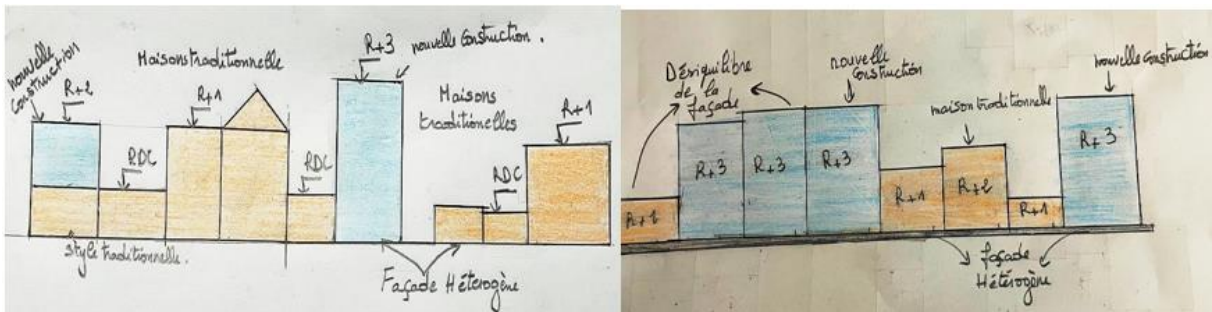 nouvelle
construction
R+2
Maisons traditionnelle
R+1
RDC
RDC
R+3
nouvelle construction.
Maisons
traditionelles
RDC
R+1
style traditionnelle.
Façade Hétérogène
Désiquilibre
de la
façade
nouvelle
construction
maison traditionnelle
nouvelle construction
R+3
R+3
R+3
R+1
R+2
R+1
R+3
façade
Hétérogène